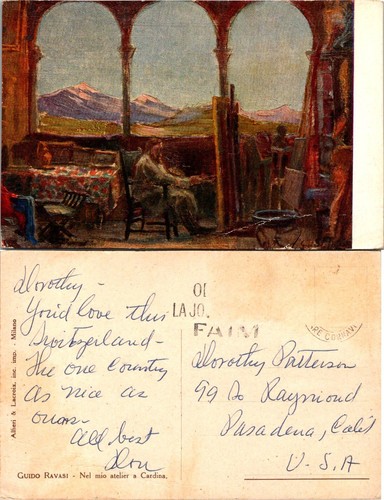 Dorothy -
You'd love this
Switzerland -
The one Country
As nice as
ours -
All best
Don
OI
LA JO.
FAIM
Dorothy Patterson
99 So Raymond
Pasadena, Calif
U.S.A
Alfieri & Lacroix, inc. imp. - Milano
GUIDO RAVASI - Nel mio atelier a Cardina.